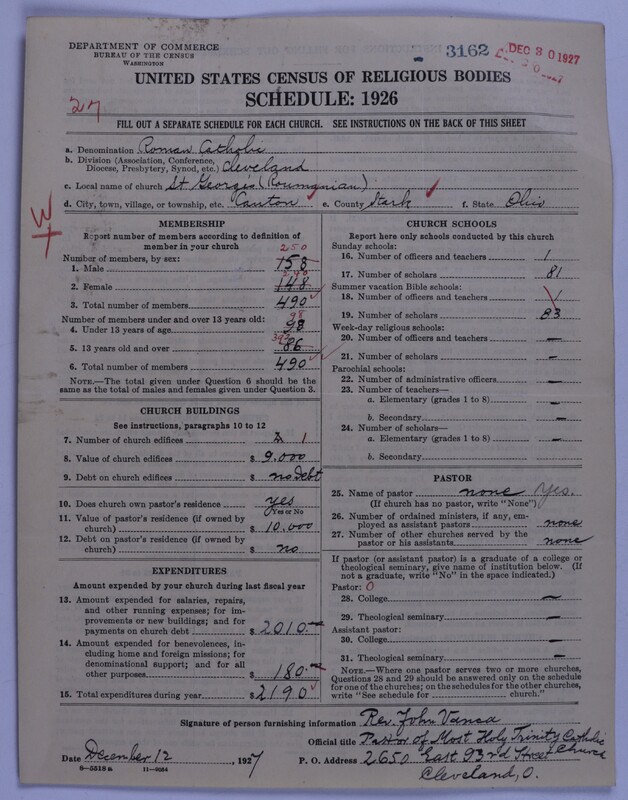 DEPARTMENT OF COMMERCE
BUREAU OF THE CENSUS
WASHINGTON
3162
DEC 30 1927
UNITED STATES CENSUS OF RELIGIOUS BODIES
SCHEDULE: 1926
27
FILL OUT A SEPARATE SCHEDULE FOR EACH CHURCH. SEE INSTRUCTIONS ON THE BACK OF THIS SHEET
a. Denomination Roman Catholic
b. Division (Association, Conference, Diocese, Presbytery, Synod, etc.) Cleveland
c. Local name of church St George's (Roumanian)
d. City, town, village, or township, etc. Canton e. County Stark f. State Ohio
MEMBERSHIP
Report number of members according to definition of member in your church
Number of members, by sex:
250
1. Male 158
2. Female 148
3. Total number of members 490
Number of members under and over 13 years old:
98
4. Under 13 years of age 98
392
5. 13 years old and over 86
6. Total number of members 490
NOTE.—The total given under Question 6 should be the
same as the total of males and females given under Question 3.
CHURCH BUILDINGS
See instructions, paragraphs 10 to 12
7. Number of church edifices 1
8. Value of church edifices $ 9.000
9. Debt on church edifices $ no debt
10. Does church own pastor's residence? yes
Yes or No
11. Value of pastor's residence (if owned by
church) $ 10.000
12. Debt on pastor's residence (if owned by
church) $ no
EXPENDITURES
Amount expended by your church during last fiscal year
13. Amount expended for salaries, repairs,
and other running expenses; for im-
provements or new buildings; and for
payments on church debt $ 2010.—
14. Amount expended for benevolences, in-
cluding home and foreign missions; for
denominational support; and for all
other purposes $ 180.—
15. Total expenditures during year $ 2190
CHURCH SCHOOLS
Report here only schools conducted by this church
Sunday schools:
16. Number of officers and teachers 1
17. Number of scholars 81
Summer vacation Bible schools:
18. Number of officers and teachers
19. Number of scholars 83
Week-day religious schools:
20. Number of officers and teachers —
21. Number of scholars —
Parochial schools:
22. Number of administrative officers —
23. Number of teachers—
a. Elementary (grades 1 to 8) —
b. Secondary —
24. Number of scholars—
a. Elementary (grades 1 to 8) —
b. Secondary —
PASTOR
25. Name of pastor none Yes.
(If church has no pastor, write "None")
26. Number of ordained ministers, if any, em-
ployed as assistant pastors none
27. Number of other churches served by the
pastor or his assistants none
If pastor (or assistant pastor) is a graduate of a college or
theological seminary, give name of institution below. (If
not a graduate, write "No" in the space indicated.)
Pastor: 0
28. College —
29. Theological seminary —
Assistant pastor:
30. College —
31. Theological seminary —
NOTE.—Where one pastor serves two or more churches,
Questions 28 and 29 should be answered only on the schedule
for one of the churches; on the schedules for the other churches,
write "See schedule for church."
Signature of person furnishing information Rev. John Vanca
Official title Pastor of Most Holy Trinity Catholic Church
Date December 12, 1927 P. O. Address 2650 East 93rd Street
Cleveland, O.
8—5518 a 11—9034